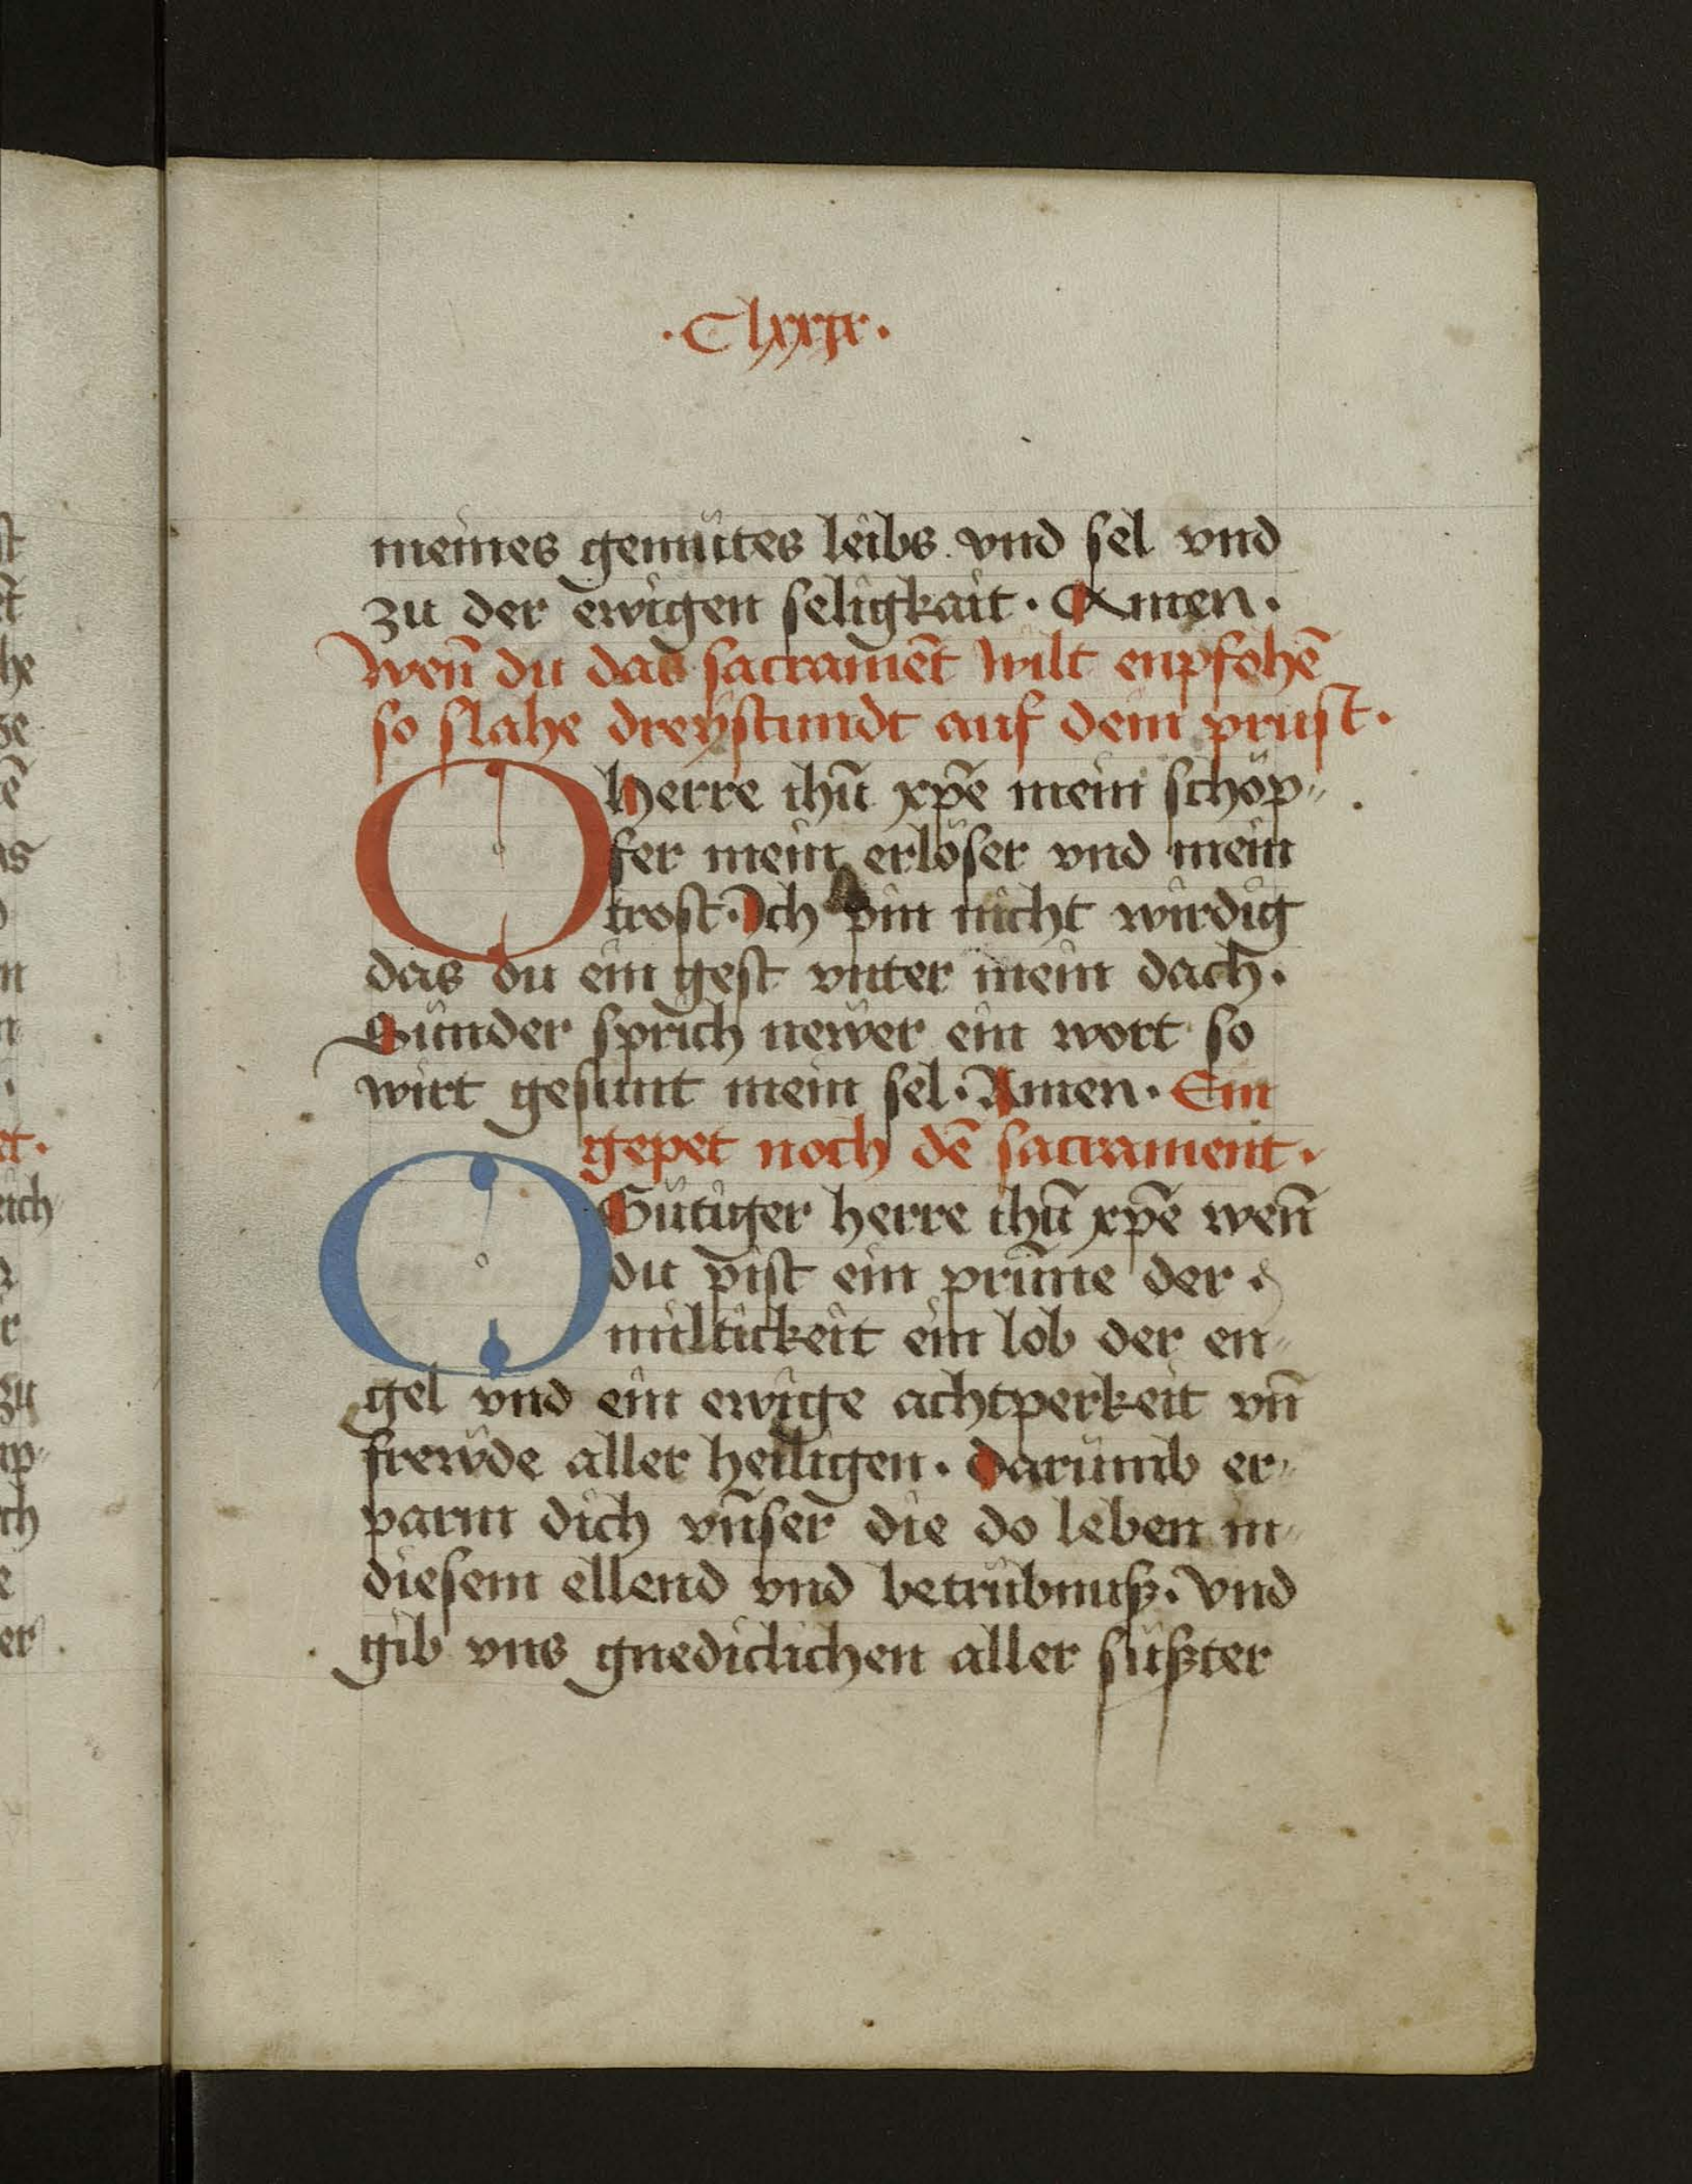 ·Clxxix·
meines gemütes leibs vnd sel vnd
zu der ewigen seligkait · Amen ·
Wen̄ du das sacramēt wilt enpfohē
so slahe dreÿstundt auf dein prust ·
O herre ihū xp̄e mein schöp
fer mein erlöser vnd mein
trost · Ich pin nicht wirdig
das du ein gest vnter mein dach ·
Sunder sprich newer ein wort so
wirt gesunt mein sel · Amen · Ein
gepet noch dē sacrament ·
O Gütiger herre ihū xp̄e wen̄
du pist ein prūne der
miltickeit ein lob der en
gel vnd ein ewige achtperkeit vn̄
frewde aller heiligen · Darumb er
parm dich vn̄ser die do leben in
diesem ellend vnd betrübnuß · Vnd
gib vns gnediclichen aller süßter